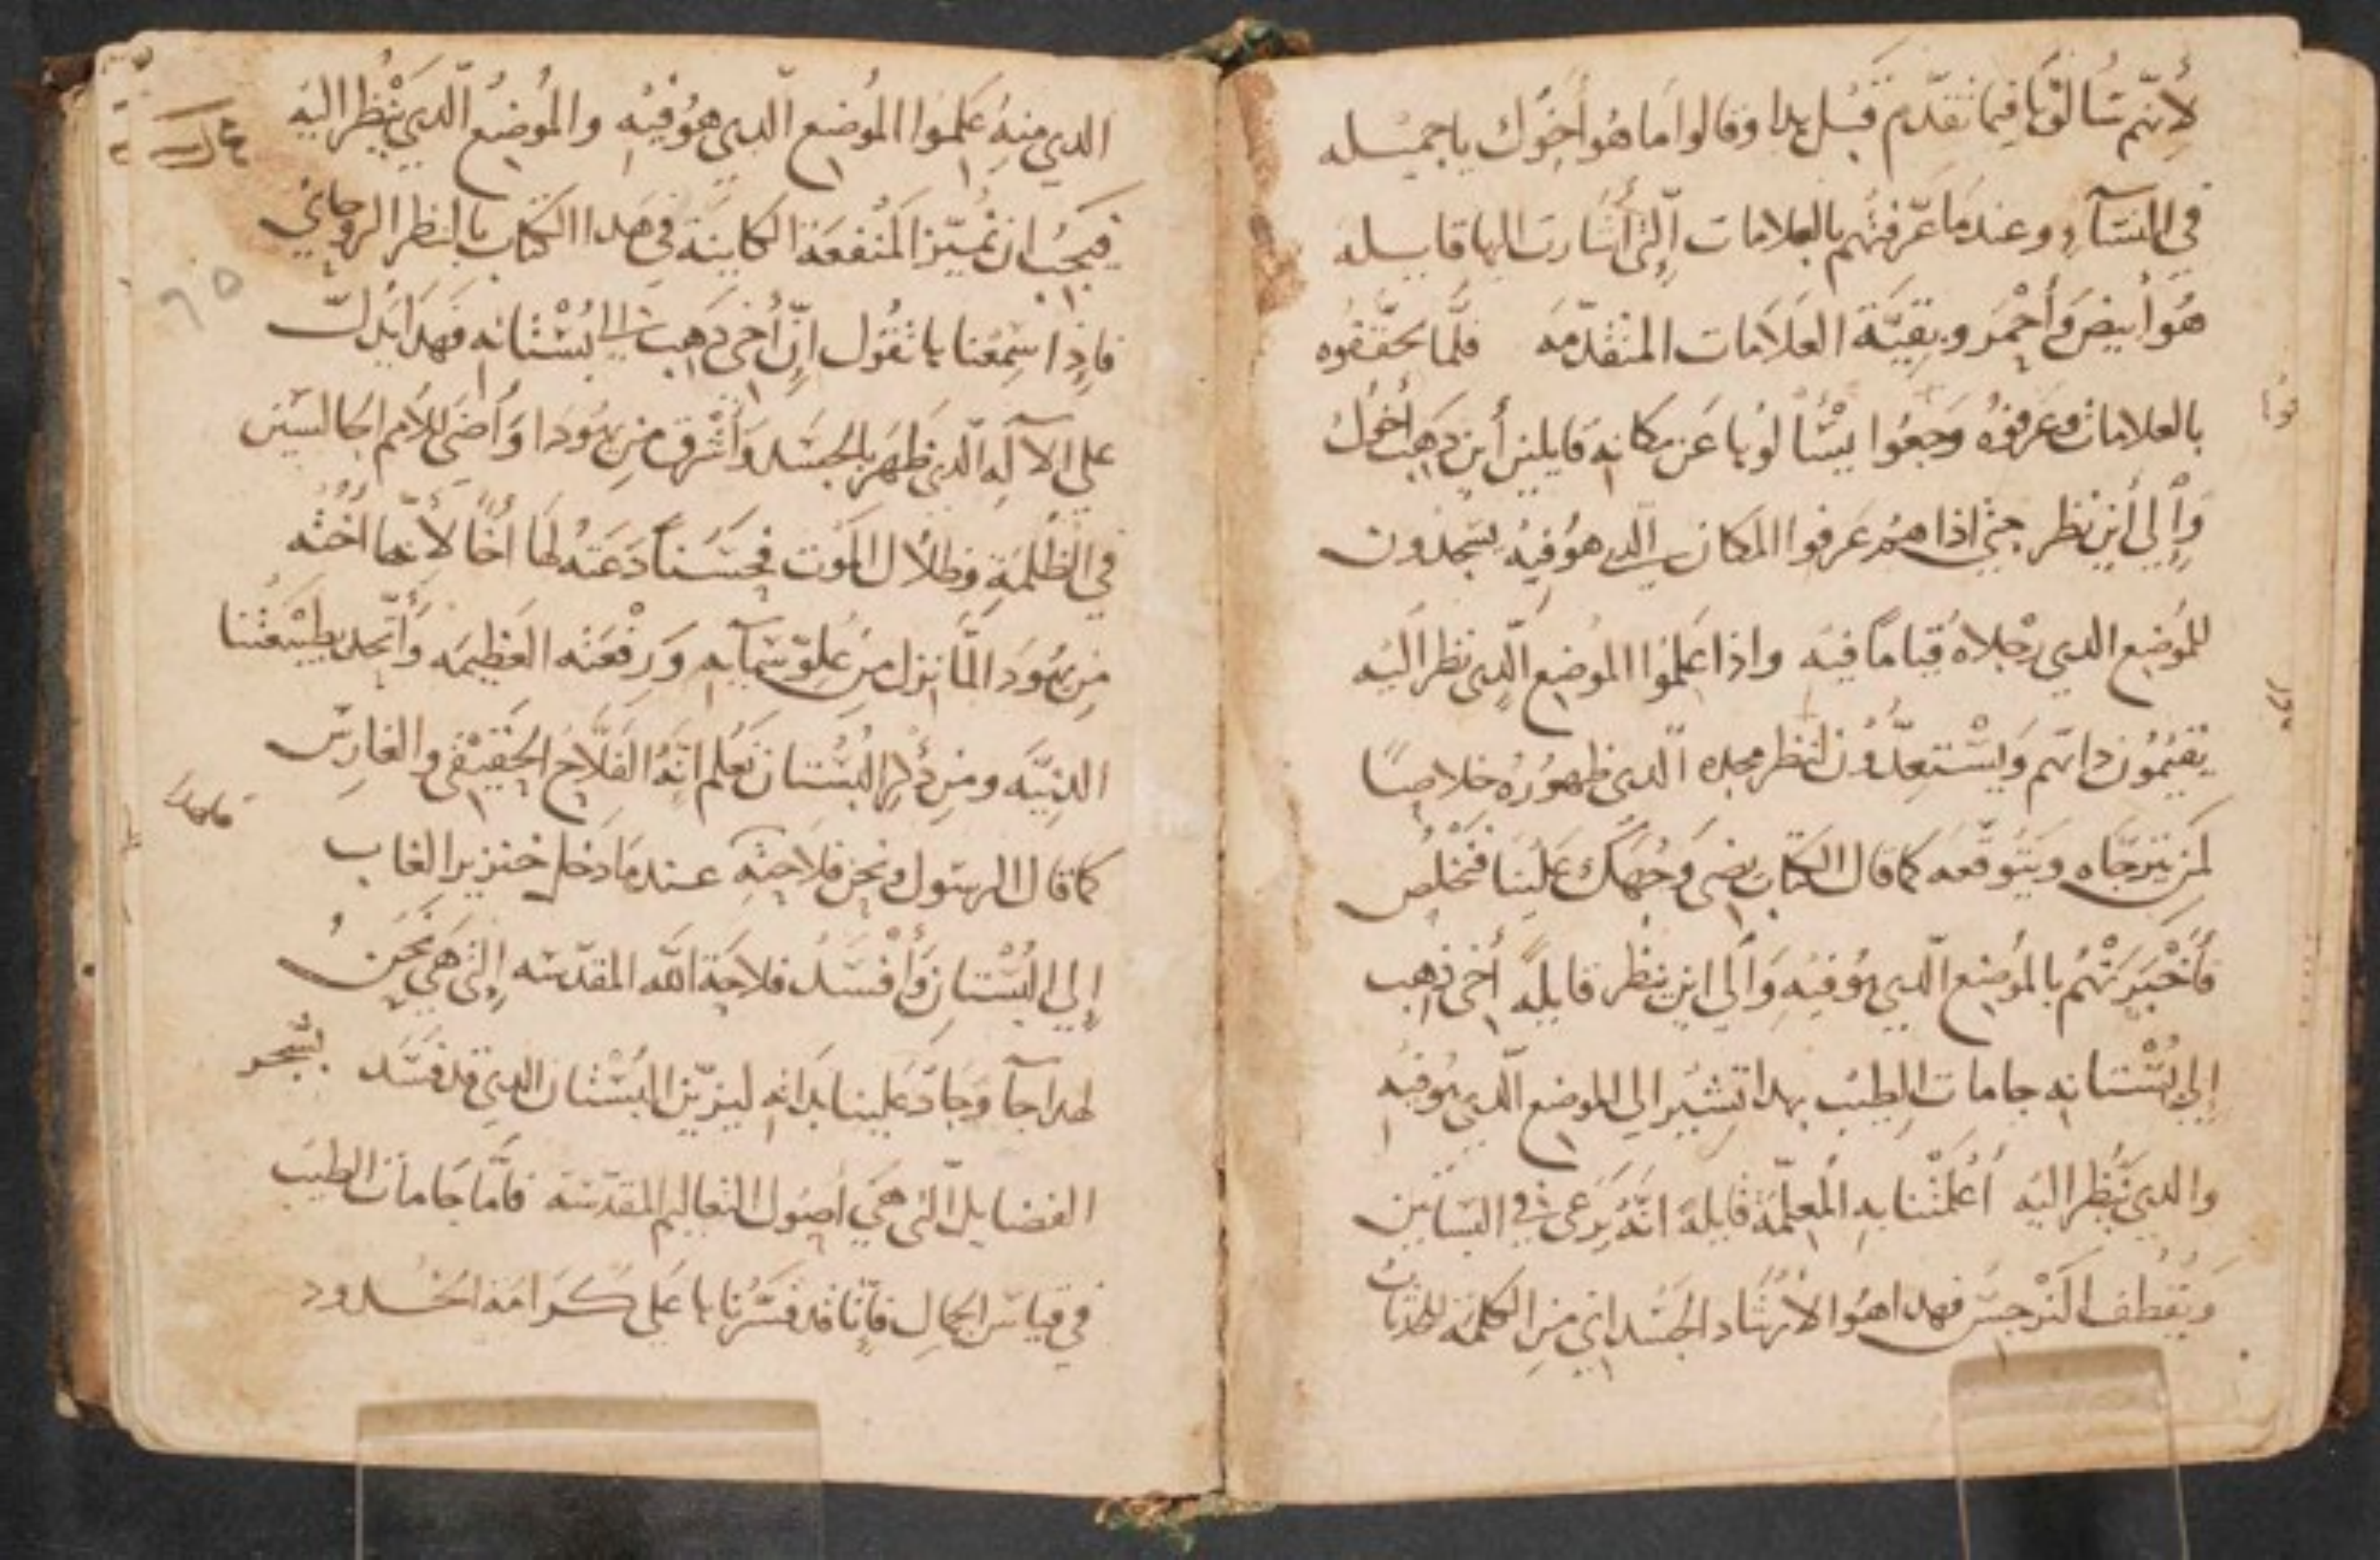 لأنّهم سَالوْها فيما تقدّم قَبْل هدا وقالوا مَا هُو أخُوك يا جميله
في النسَآء وعند مَا عَرّفتهم بالعلامات الّتي أشارت اليها قايله
هُو أبيض وَأحْمر وبقيّة العَلامَات المتقدّمه فلمّا تحقّقوه
بالعَلامات وعَرفوهُ رَجعُوا يسْألونها عَن مكانه قايلين أين دَهب أخوكِ
وَإلى أين نظر حتى ادا هم عَرفوا المكان الدي هوُ فيه يسجدون
للموَضع الدي رجْلاهُ قيامًا فيه وادا عَلمُوا الموضع الّدي نظر اليْه
يقيمُون داتهم وَيسْتعِدّوُن لنظر مجده الّدي ظهوُرُه خلاصًا
لمَن يترجّاه ويتوقّعه كما قال الكتاب يضي وَجْهك عَلينا فنخلصُ
فأخْبَرَتْهُم بالموَضع الّدي هوُ فيه وَإلى اين ينظر قايلةً أخي دهب
إلى بُسْتانه جامات الطيب بهدا تشير الى الموضع الّدي هوُ فيه
والدي يَنظر اليه أعْلمَتْنا به المعلّمة قايلة انّهُ يرعَى في البسَاتين
وَيقطف النَرْجسَ فهدا هُوا الارشاد الجسَداني من الكلمة للدَات
الدي منه عَلموا الموُضع الّدي هوُ فيه والموُضع الّدي يَنظر اليه
فيجبُ ان نميّز المنفعَة الكاينة في هَدا الكتاب بالنظر الروحَاني
فإدا سَمعْنا ها تقُول إنّ أخي دَهب الى بُسْتانه فهدا يَدلّ
على الآلَه الّدي ظهَر بالجسَد وَأشرق من يهُودا وَأضَى للامم الجالسَين
في الظلمَةِ وظلال الموَت فحسَناً دَعَته لهَا أخًا لأنّها أخته
من يهُودَا لمَّا نزل مِن عُلوّ سَمآيه وَرفْعَته العَظيمَه وَأتّحد بطبيْعَتنا
الدنيَّه ومن دكر البُسْتان نَعْلم انّهُ الفَلّاح الحَقيْقي والغارسَ
كما قال الرسَول ونحن فلاحته عند مَا دَخل خنزير الغاب
إلى البُسْتان وَأفْسَدَ فلاحَة الله المقدّسَه الّتي هَي نَحن
لهدا جآ وَجَادَ عَلينا بدَاته ليزيّن البُسْتان الدي قد فسَد بشجر
الفضايل الّتي هَي أصُول التعاليم المقدّسَة فأمّا جَامات الطيب
في قياسَ الجمال فإنّا قد فسَّرْنا ها عَلى كَرامَة الخدود